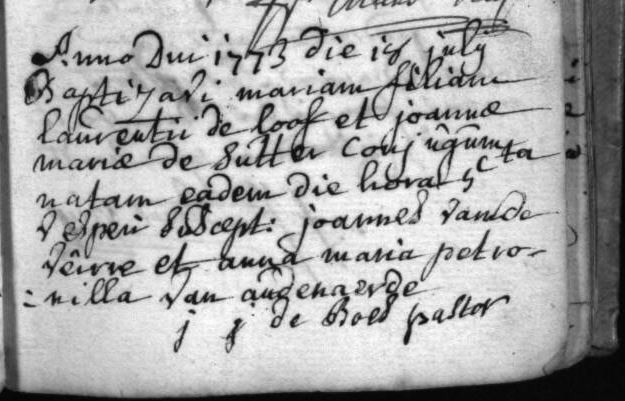 Anno Dni 1773 die 18 july
Baptizavi mariam filiam
laurentii de loof et joannæ
mariæ de Sutter Conjugum
natam eadem die hora 5ta
Vesperi Suscept: joannes vande
Veirre et anna maria petro-
:nilla Van audenaerde
j j de Boes pastor